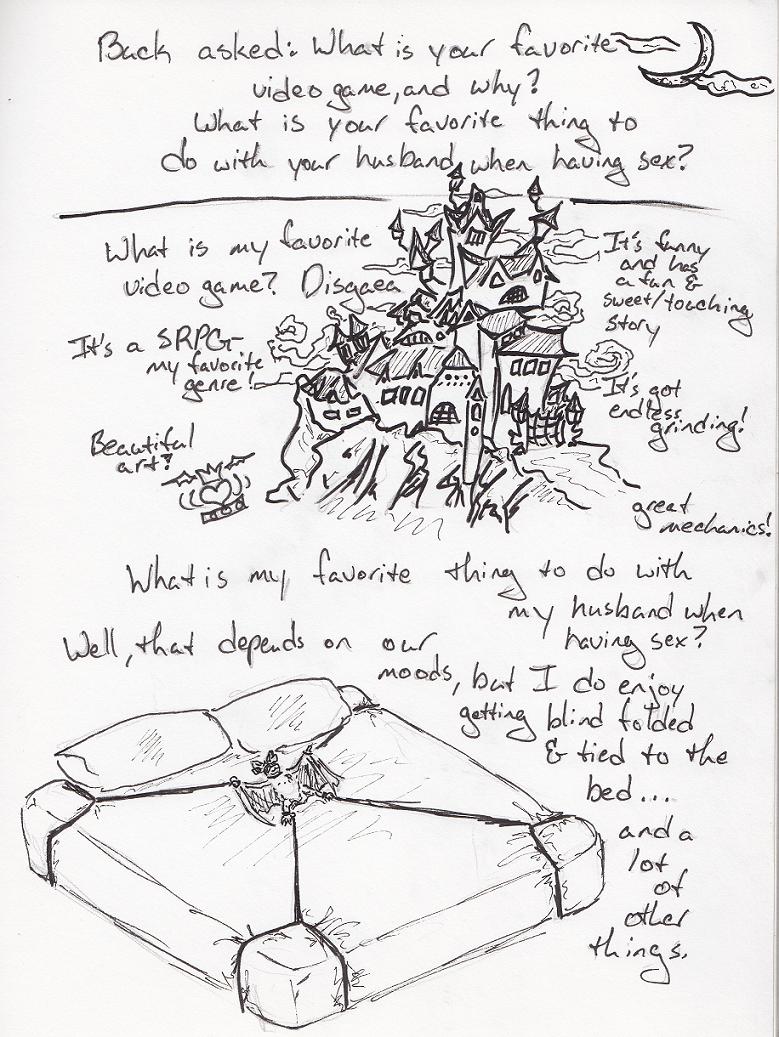 Back asked: What is your favorite
video game, and why?
What is your favorite thing to
do with your husband when having sex?
What is my favorite
video game? Disgaea
It's a SRPG-
my favorite
genre!
Beautiful
art!
It's funny
and has
a fun &
sweet/touching
story
It's got
endless
grinding!
great
mechanics!
What is my favorite thing to do with
my husband when
having sex?
Well, that depends on our
moods, but I do enjoy
getting blind folded
& tied to the
bed...
and a
lot
of
other
things.